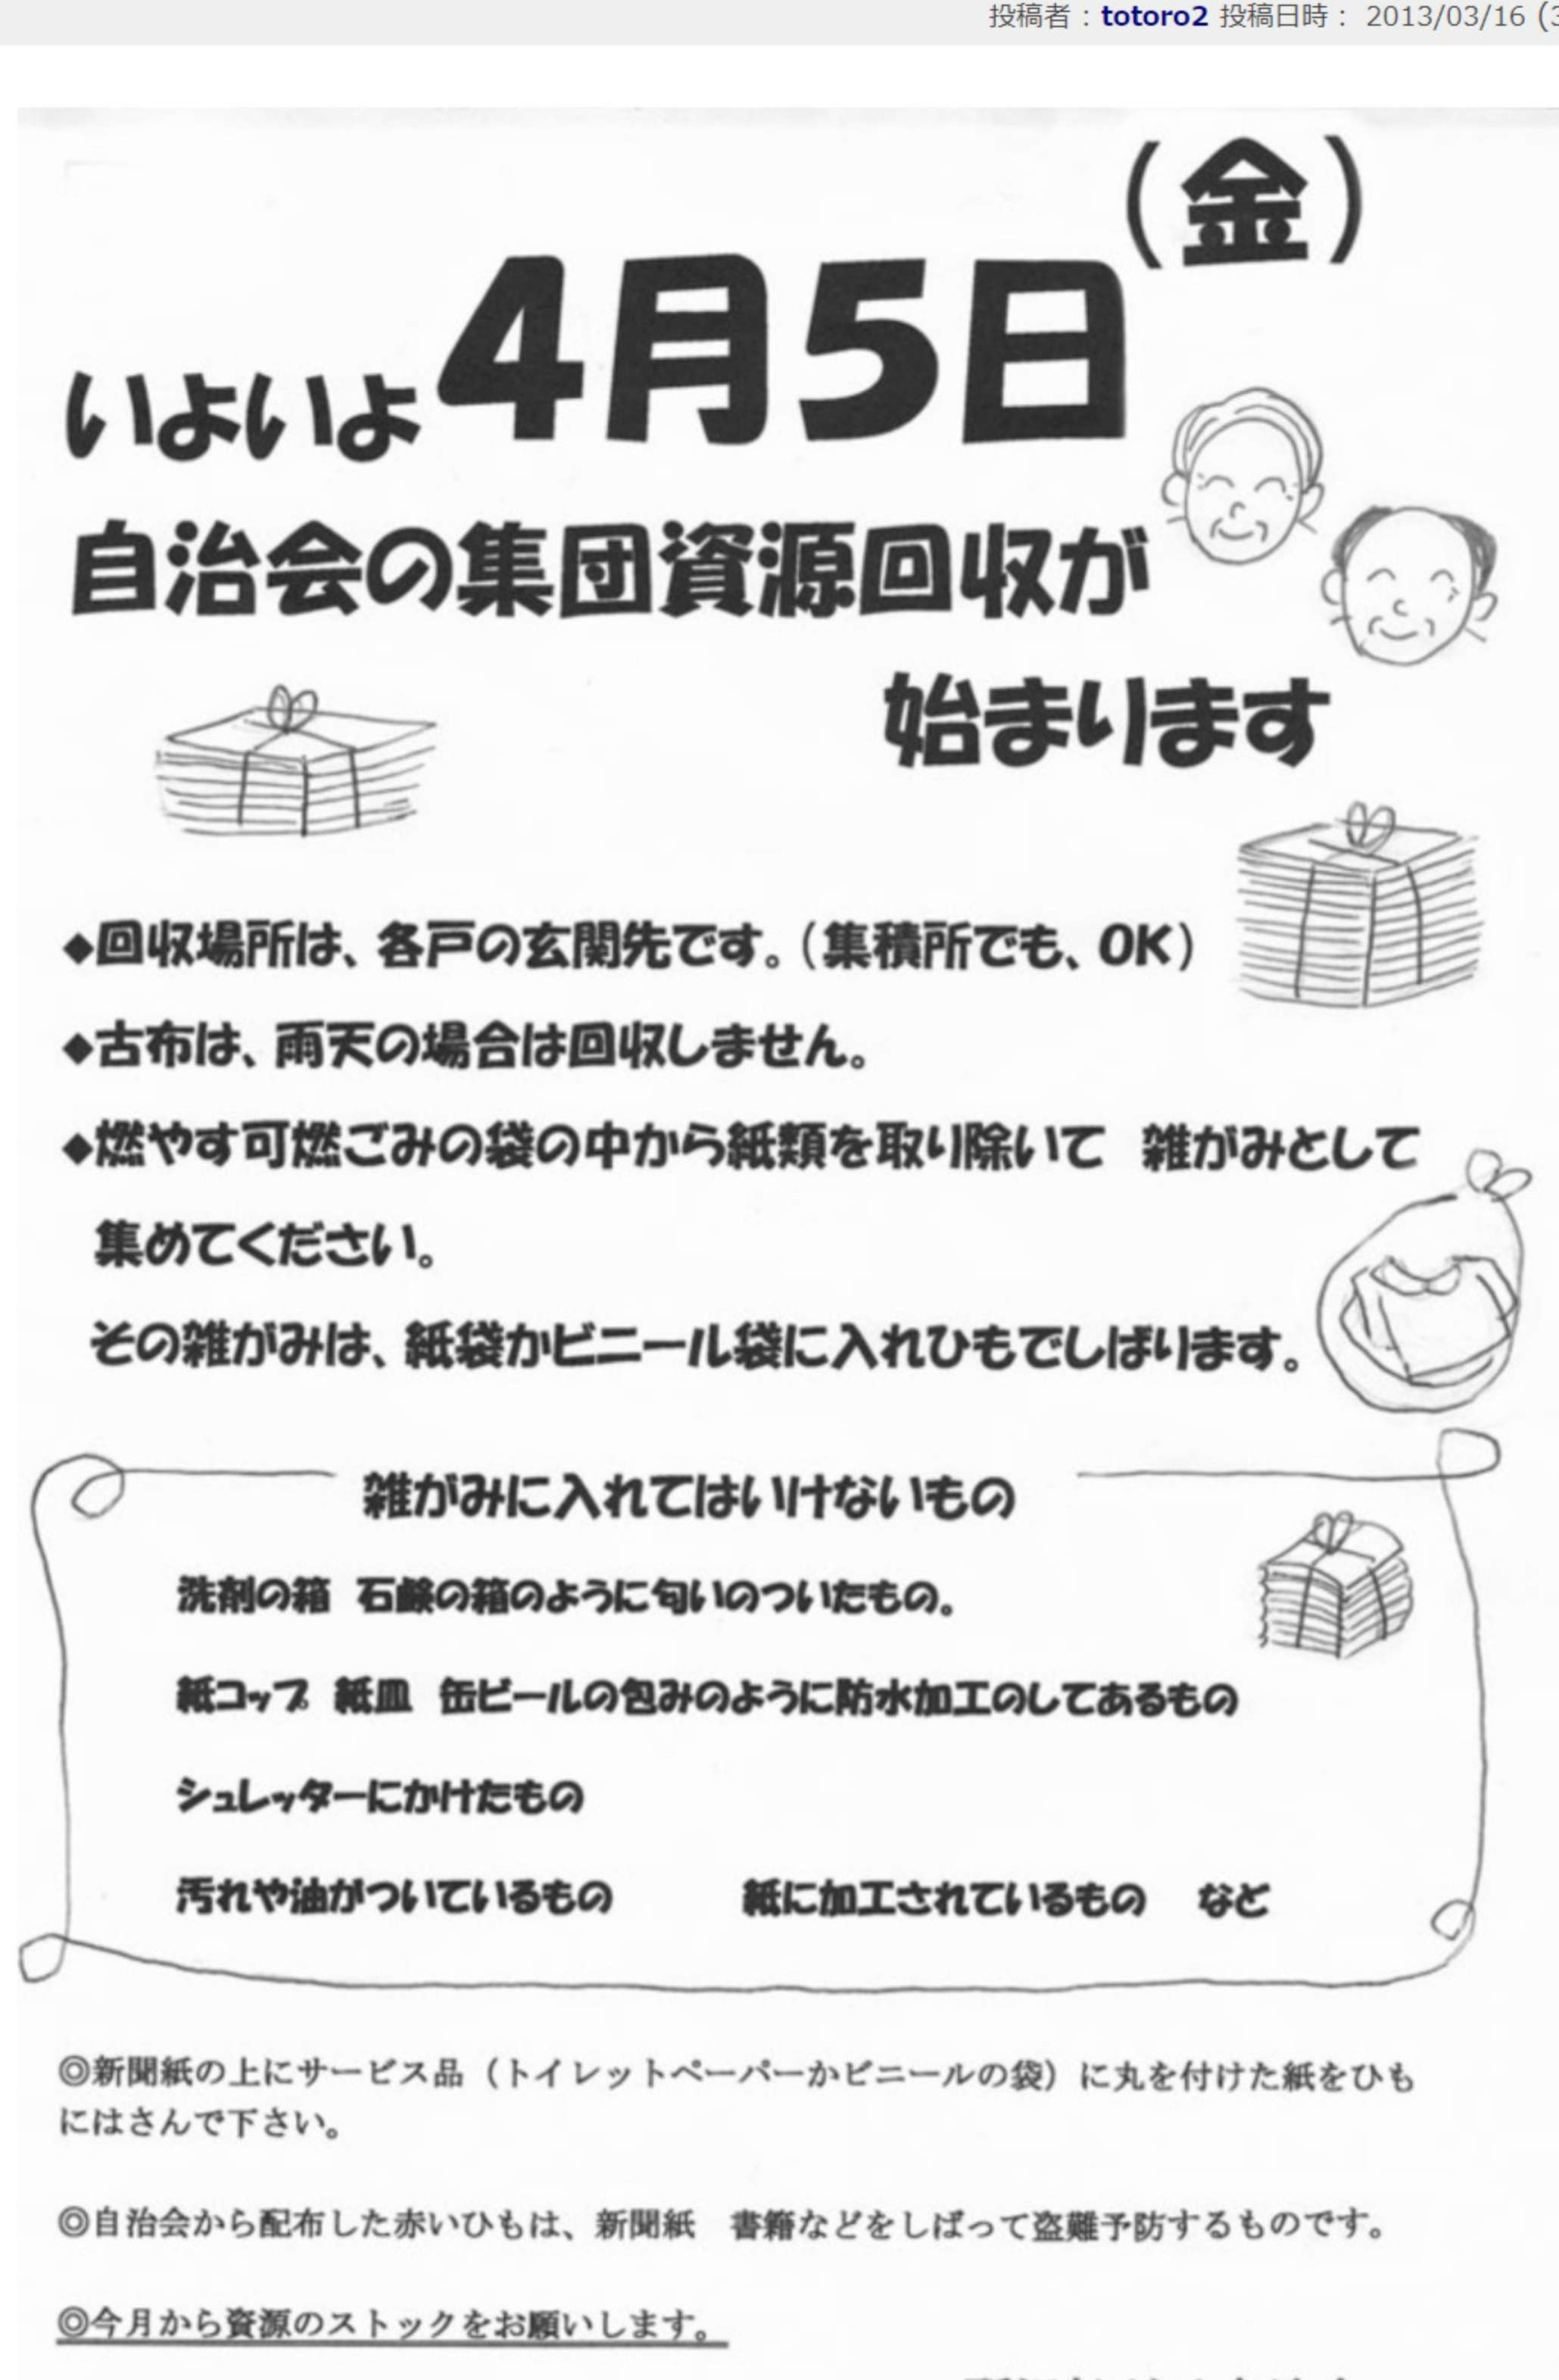 投稿者：totoro2 投稿日時： 2013/03/16
(金)
いよいよ4月5日
自治会の集団資源回収が
始まります
◆回収場所は、各戸の玄関先です。(集積所でも、OK)
◆古布は、雨天の場合は回収しません。
◆燃やす可燃ごみの袋の中から紙類を取り除いて　雑がみとして
集めてください。
その雑がみは、紙袋かビニール袋に入れひもでしばります。
雑がみに入れてはいけないもの
洗剤の箱　石鹸の箱のように匂いのついたもの。
紙コップ　紙皿　缶ビールの包みのように防水加工のしてあるもの
シュレッターにかけたもの
汚れや油がついているもの　　　紙に加工されているもの　など
◎新聞紙の上にサービス品（トイレットペーパーかビニールの袋）に丸を付けた紙をひも
にはさんで下さい。
◎自治会から配布した赤いひもは、新聞紙　書籍などをしばって盗難予防するものです。
◎今月から資源のストックをお願いします。